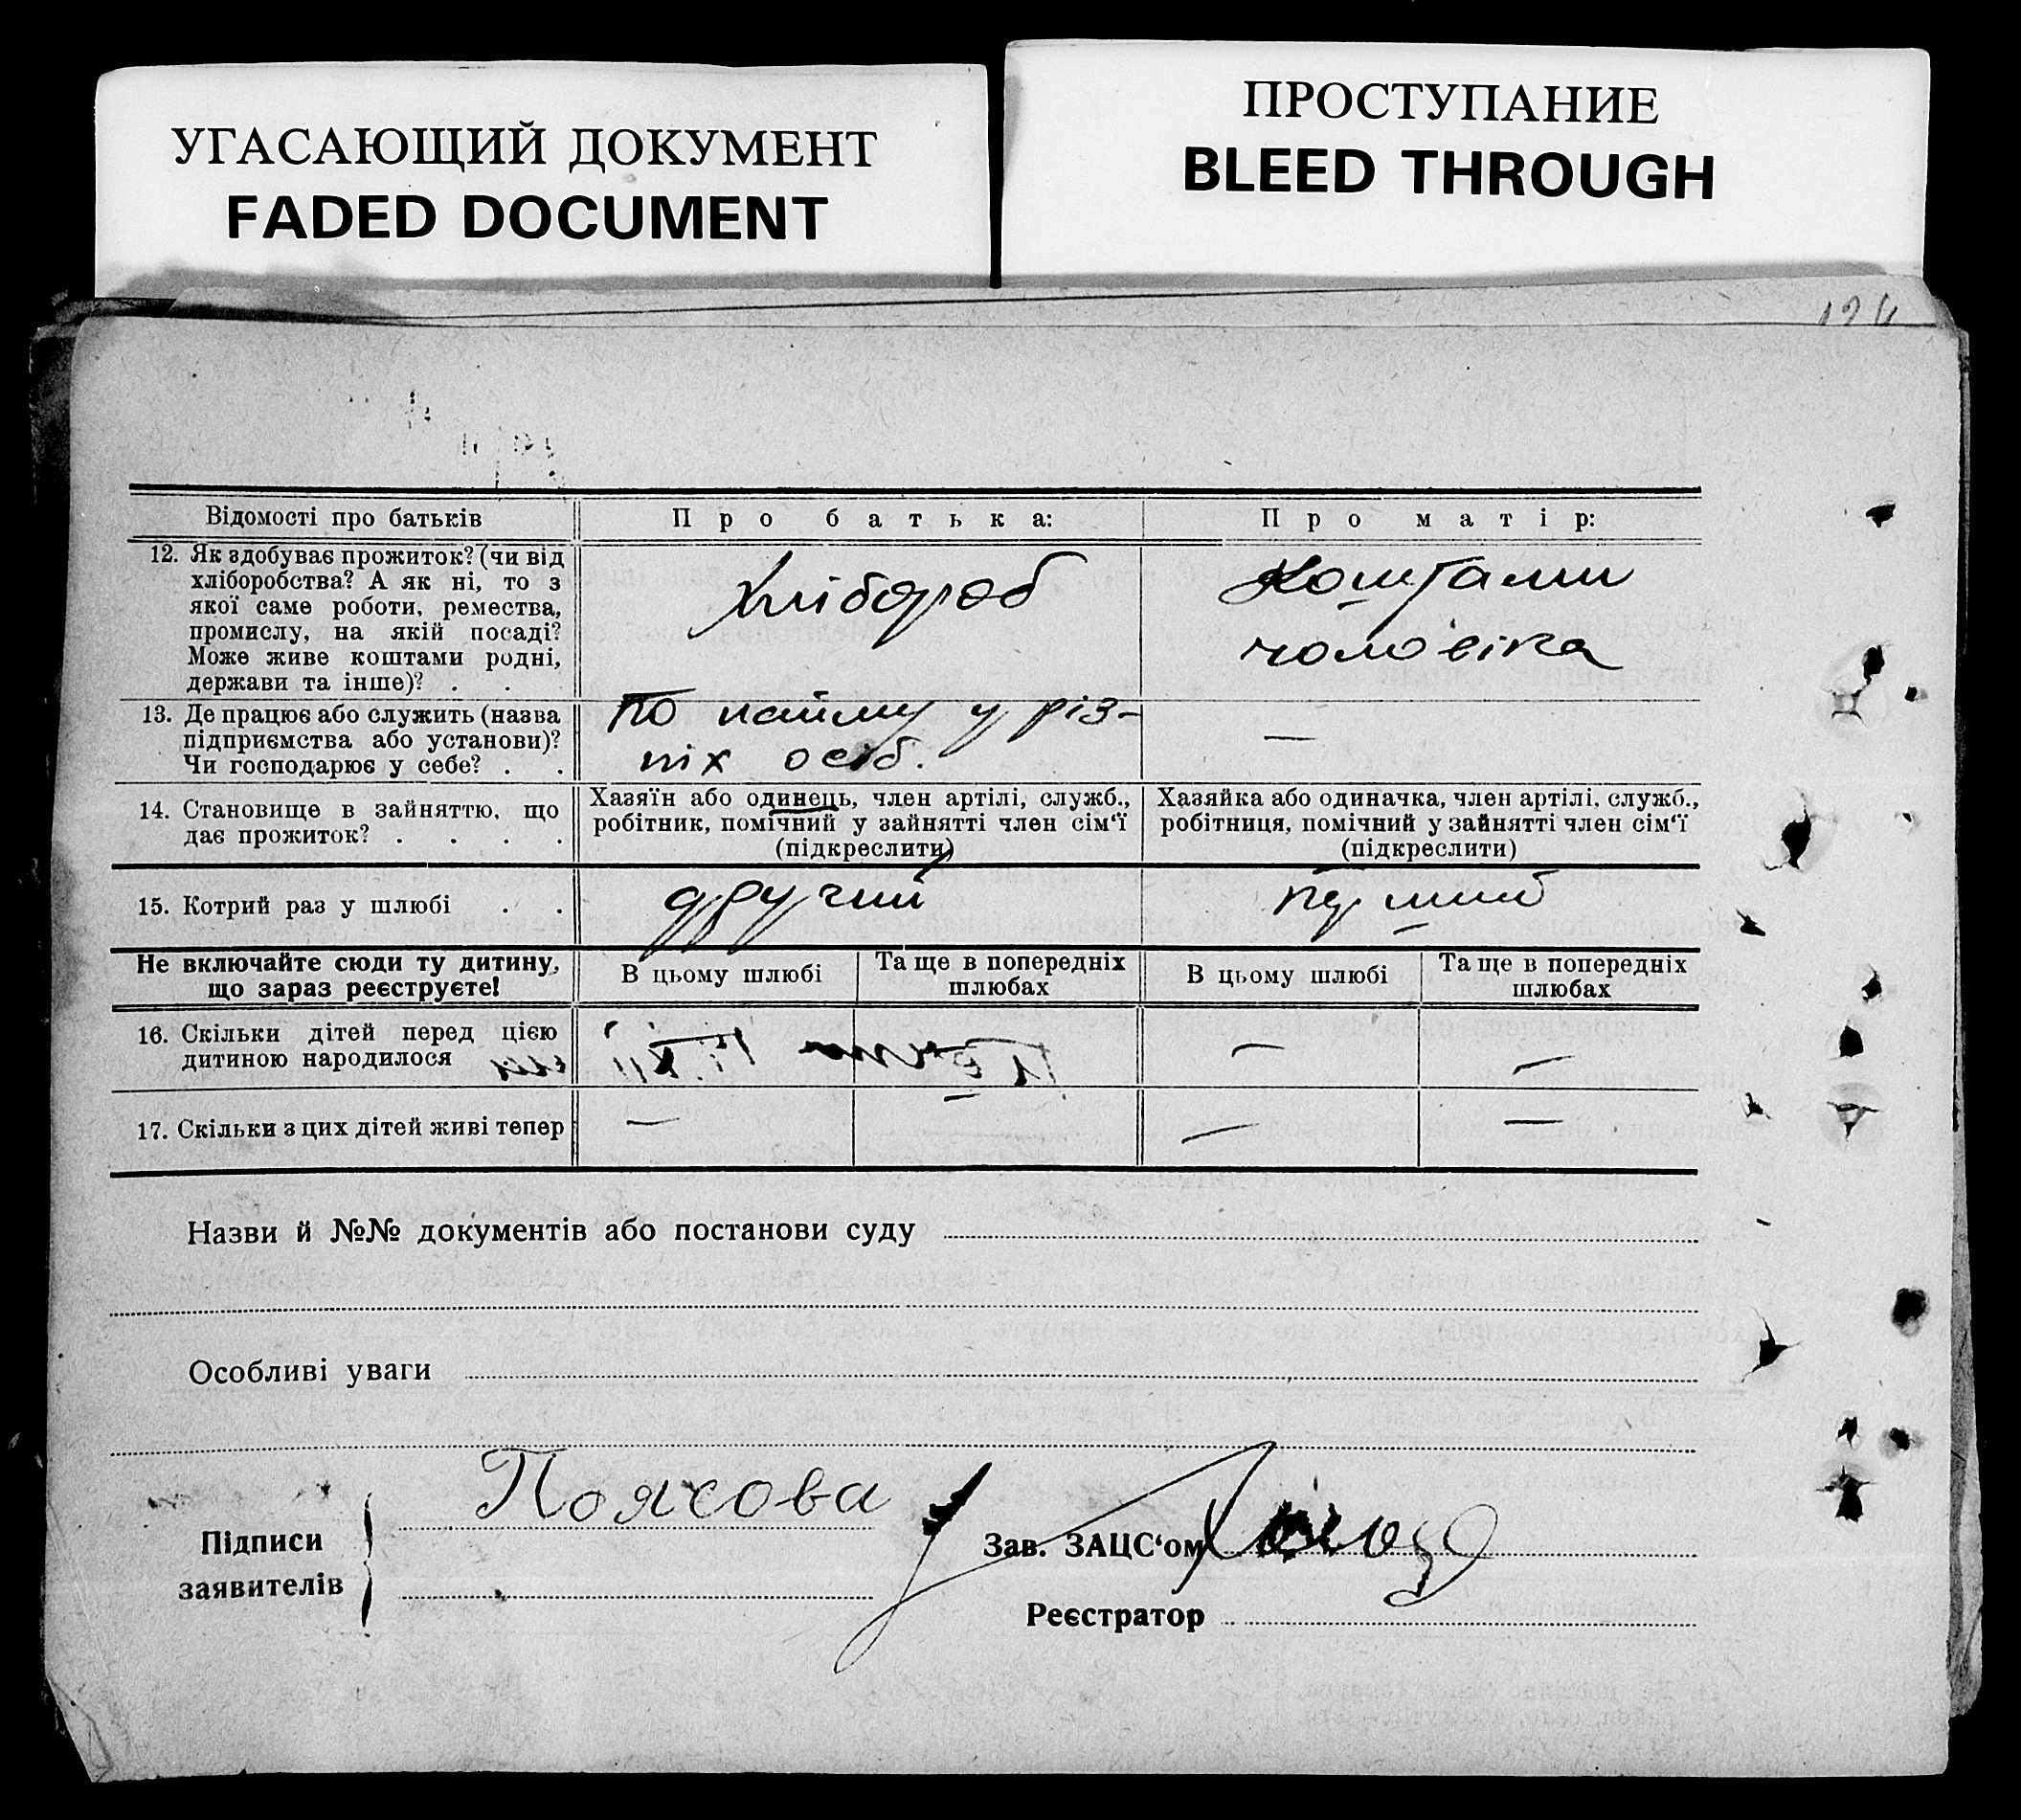 УГАСАЮЩИЙ ДОКУМЕНТ
FADED DOCUMENT
ПРОСТУПАНИЕ
BLEED THROUGH
Відомості про батьків
Про батька:
Про матір:
12. Як здобуває прожиток? (чи від
хліборобства? А як ні, то з
якої саме роботи, ремества,
промислу, на якій посаді?
Може живе коштами родні,
держави та інше)? . .
Хлібороб
Коштами
чоловіка
13. Де працює або служить (назва
підприємства або установи)?
Чи господарює у себе? . .
По найму у різ-
ніх осіб.
—
14. Становище в зайняттю, що
дає прожиток? . . . .
Хазяїн або одинець, член артілі, служб.,
робітник, помічний у зайнятті член сім‘ї
(підкреслити)
Хазяйка або одиначка, член артілі, служб.,
робітниця, помічний у зайнятті член сім‘ї
(підкреслити)
15. Котрий раз у шлюбі . .
другий
перший
Не включайте сюди ту дитину,
що зараз реєструєте!
В цьому шлюбі
Та ще в попередніх
шлюбах
В цьому шлюбі
Та ще в попередніх
шлюбах
16. Скільки дітей перед цією
дитиною народилося
— —
17. Скільки з цих дітей живі тепер
— — — —
Назви й №№ документів або постанови суду
Особливі уваги
Підписи
заявителів
Поясова
Зав. ЗАЦС‘ом
Реєстратор